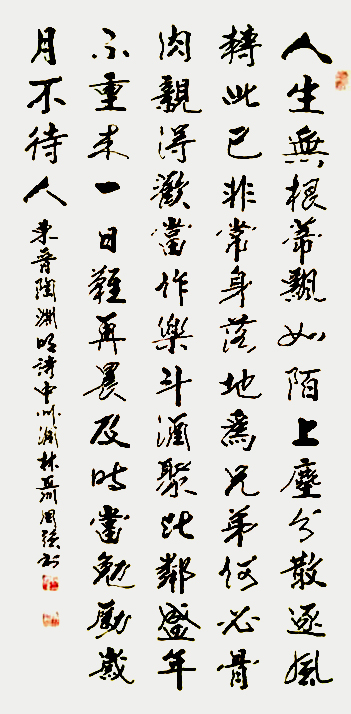 人生無根蒂飄如陌上塵分散逐風
轉此已非常身落地為兄弟何必骨
肉親得歡當作樂斗酒聚比鄰盛年
不重来一日難再晨及時當勉勵歲
月不待人
東晉陶淵明詩中州林周强书